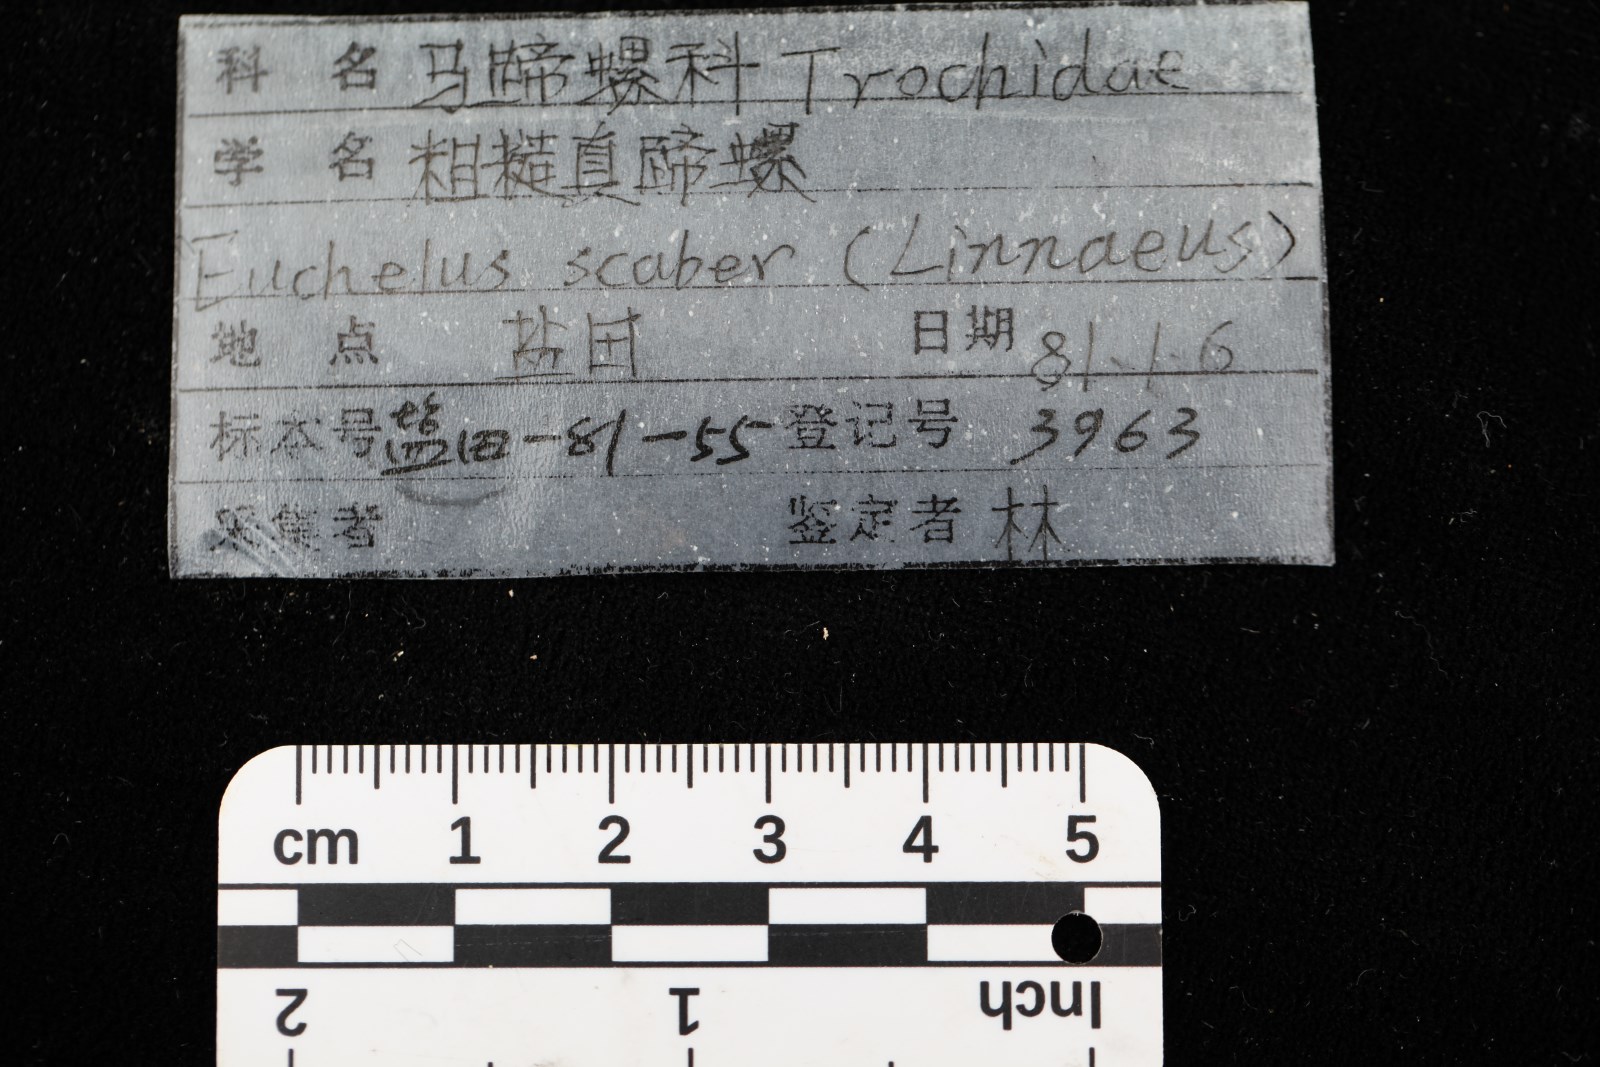 科 名 马蹄螺科 Trochidae
学 名 粗糙真蹄螺
Euchelus scaber (Linnaeus)
地 点 盐田 日期 81.1.6
标本号 盐田-81-55 登记号 3963
采集者 鉴定者 林
cm 1 2 3 4 5
Inch 1 2